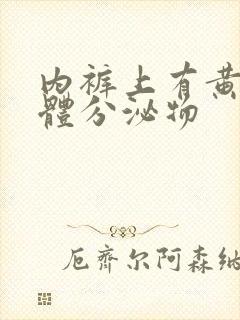 內裤上有黄
體分泌物
厄齊尔阿森纳